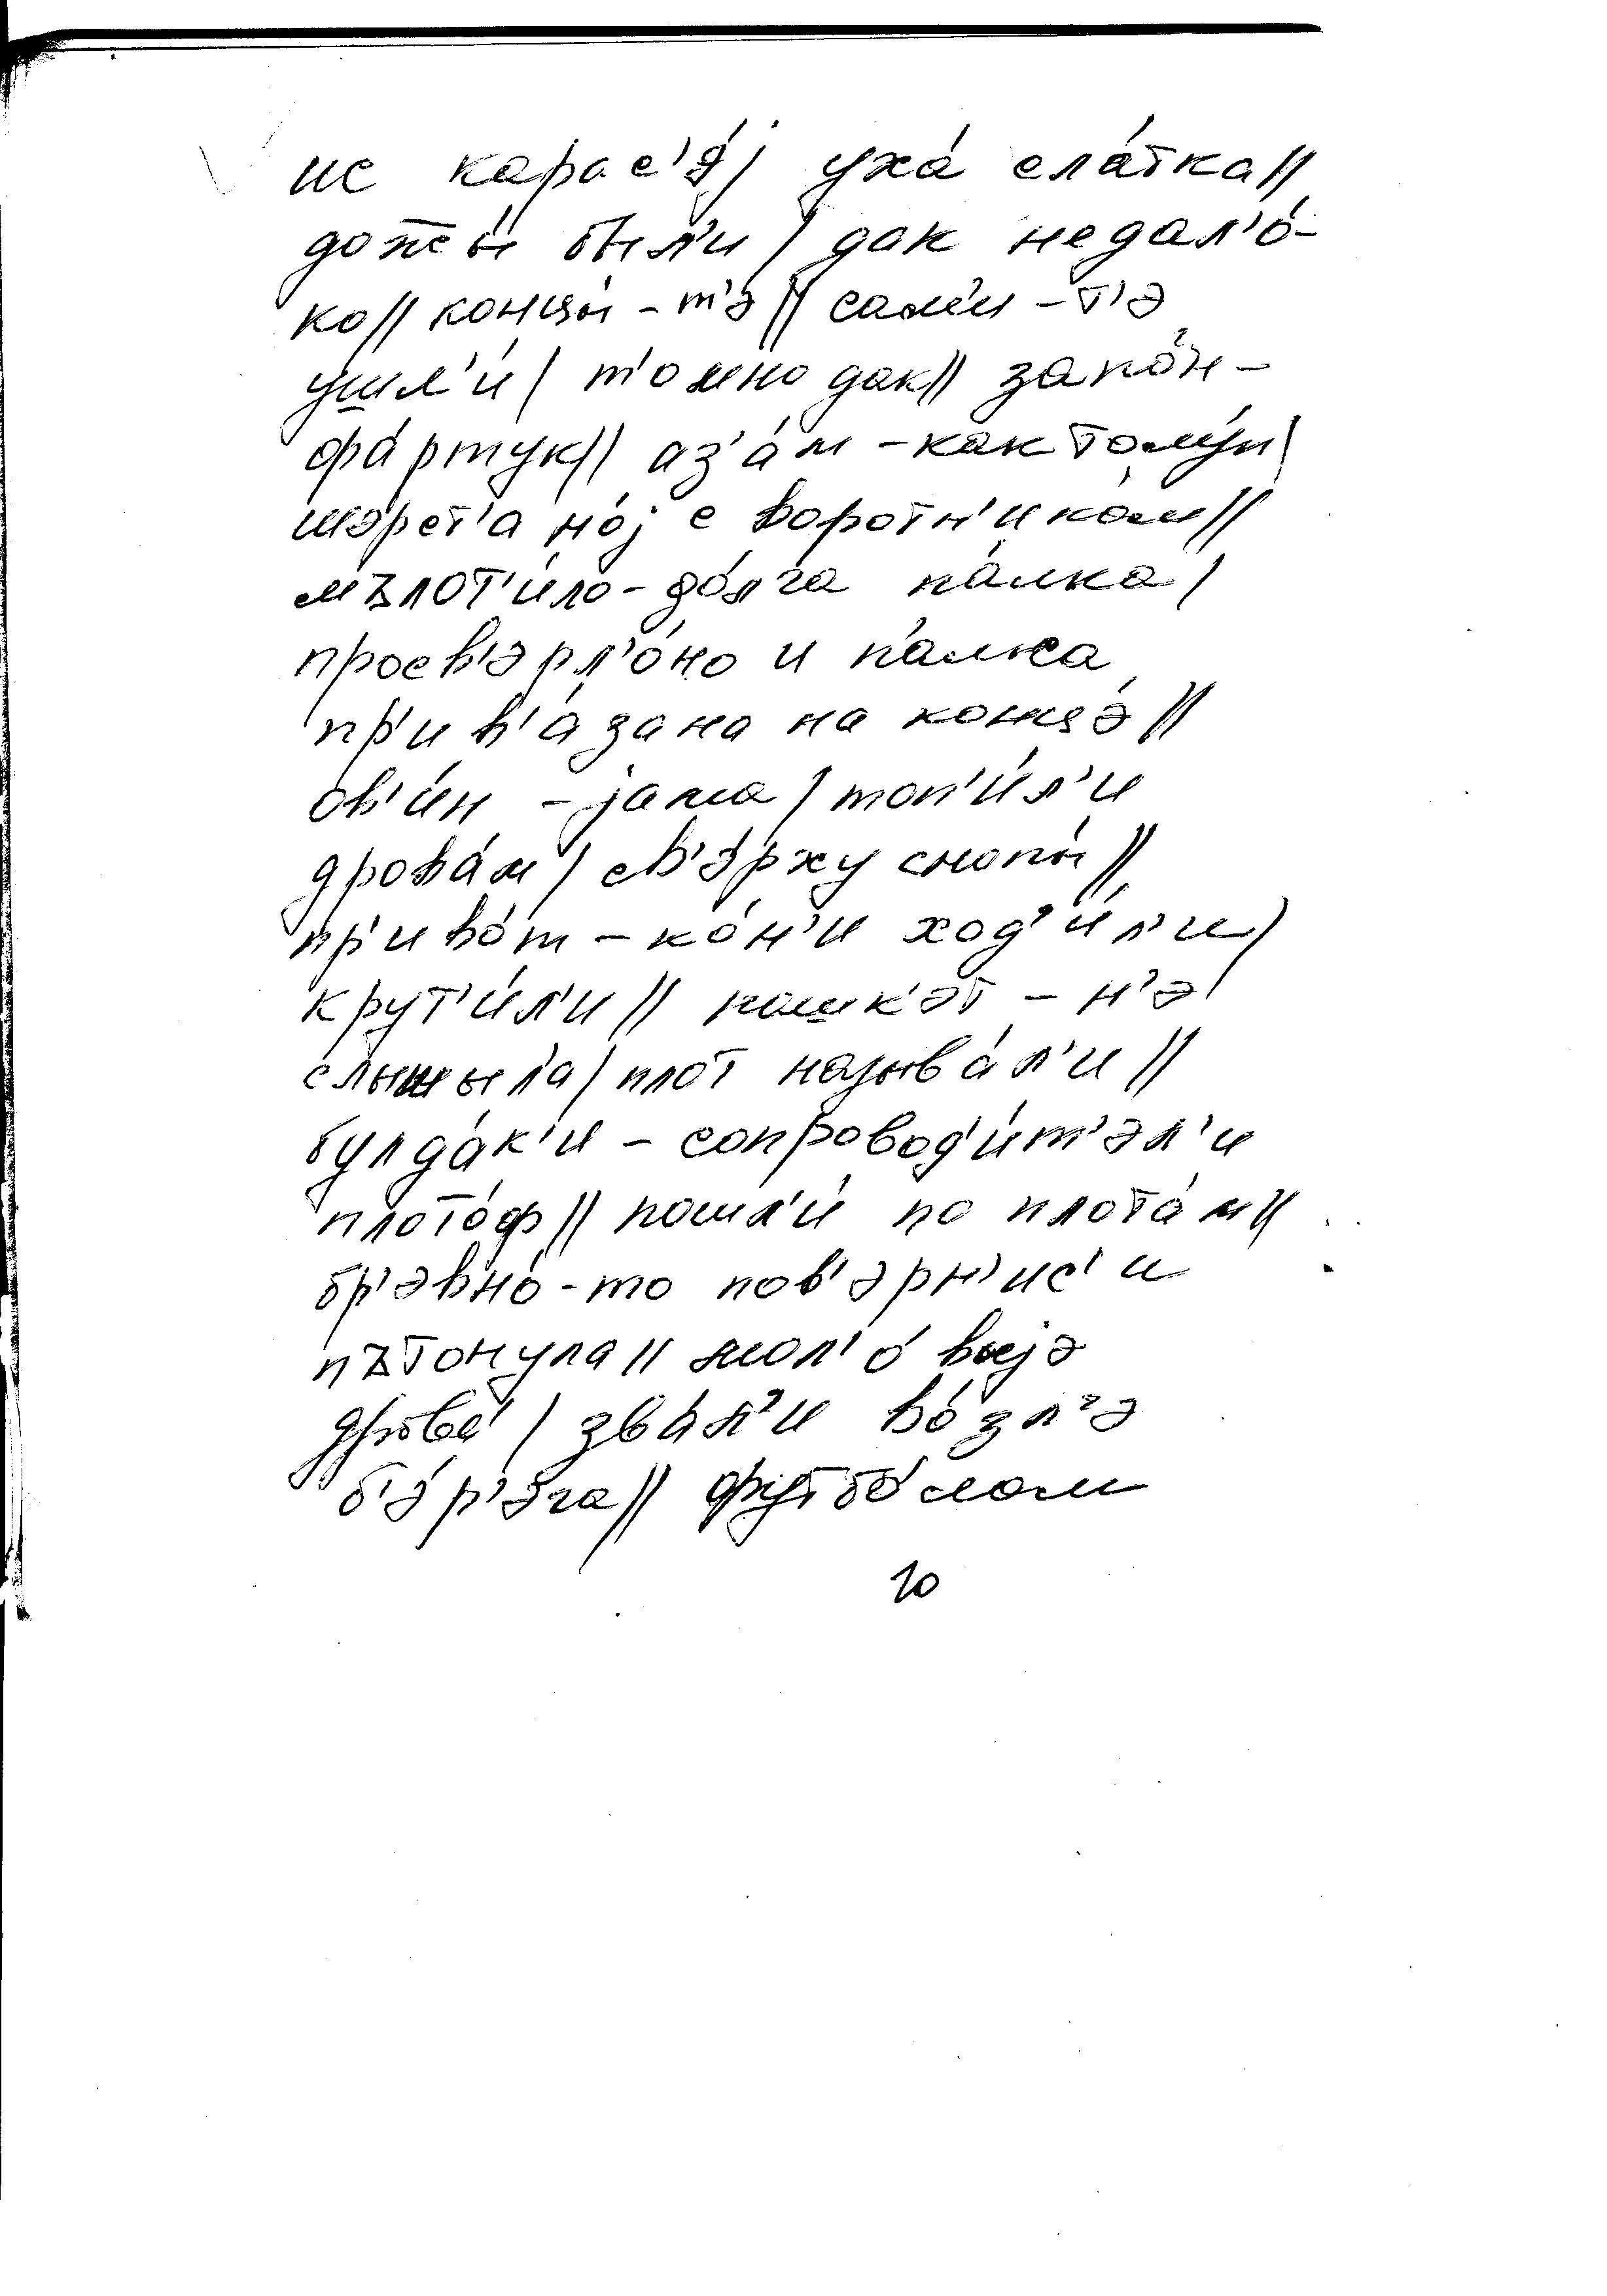 ис карас'э́j уха́ сла́тка//
дожы́ бы́л'и / дак недал'о́-
ко// концы́-т'э // сам'и́-т'э
ушл'и́ / т'омно дак// запо́н-
фа́ртук// аз'а́м - как тулу́п /
шэрст'ано́j с воротн'ико́м//
мълот'и́ло - до́лга па́лка /
просв'эрл'о́но и па́лка
пр'ив'а́зана на концэ́ //
ов'и́н - jа́ма / топ'и́л'и
дрова́м / св'э́рху снопы́ //
пр'иво́т - ко́н'и ход'и́л'и /
крут'и́л'и // помк'эт - н'э
слы́шыла / плот называ́л'и //
булда́к'и - сопровод'и́т'эл'и
плото́ф // пошл'и́ по плота́м //
бр'эвно́-то пов'эрн'ис' и
пътонула // мол'о́выjэ
дрова́ / зва́л'и во́зл'э
б'э́р'эга // футбо́лом
10